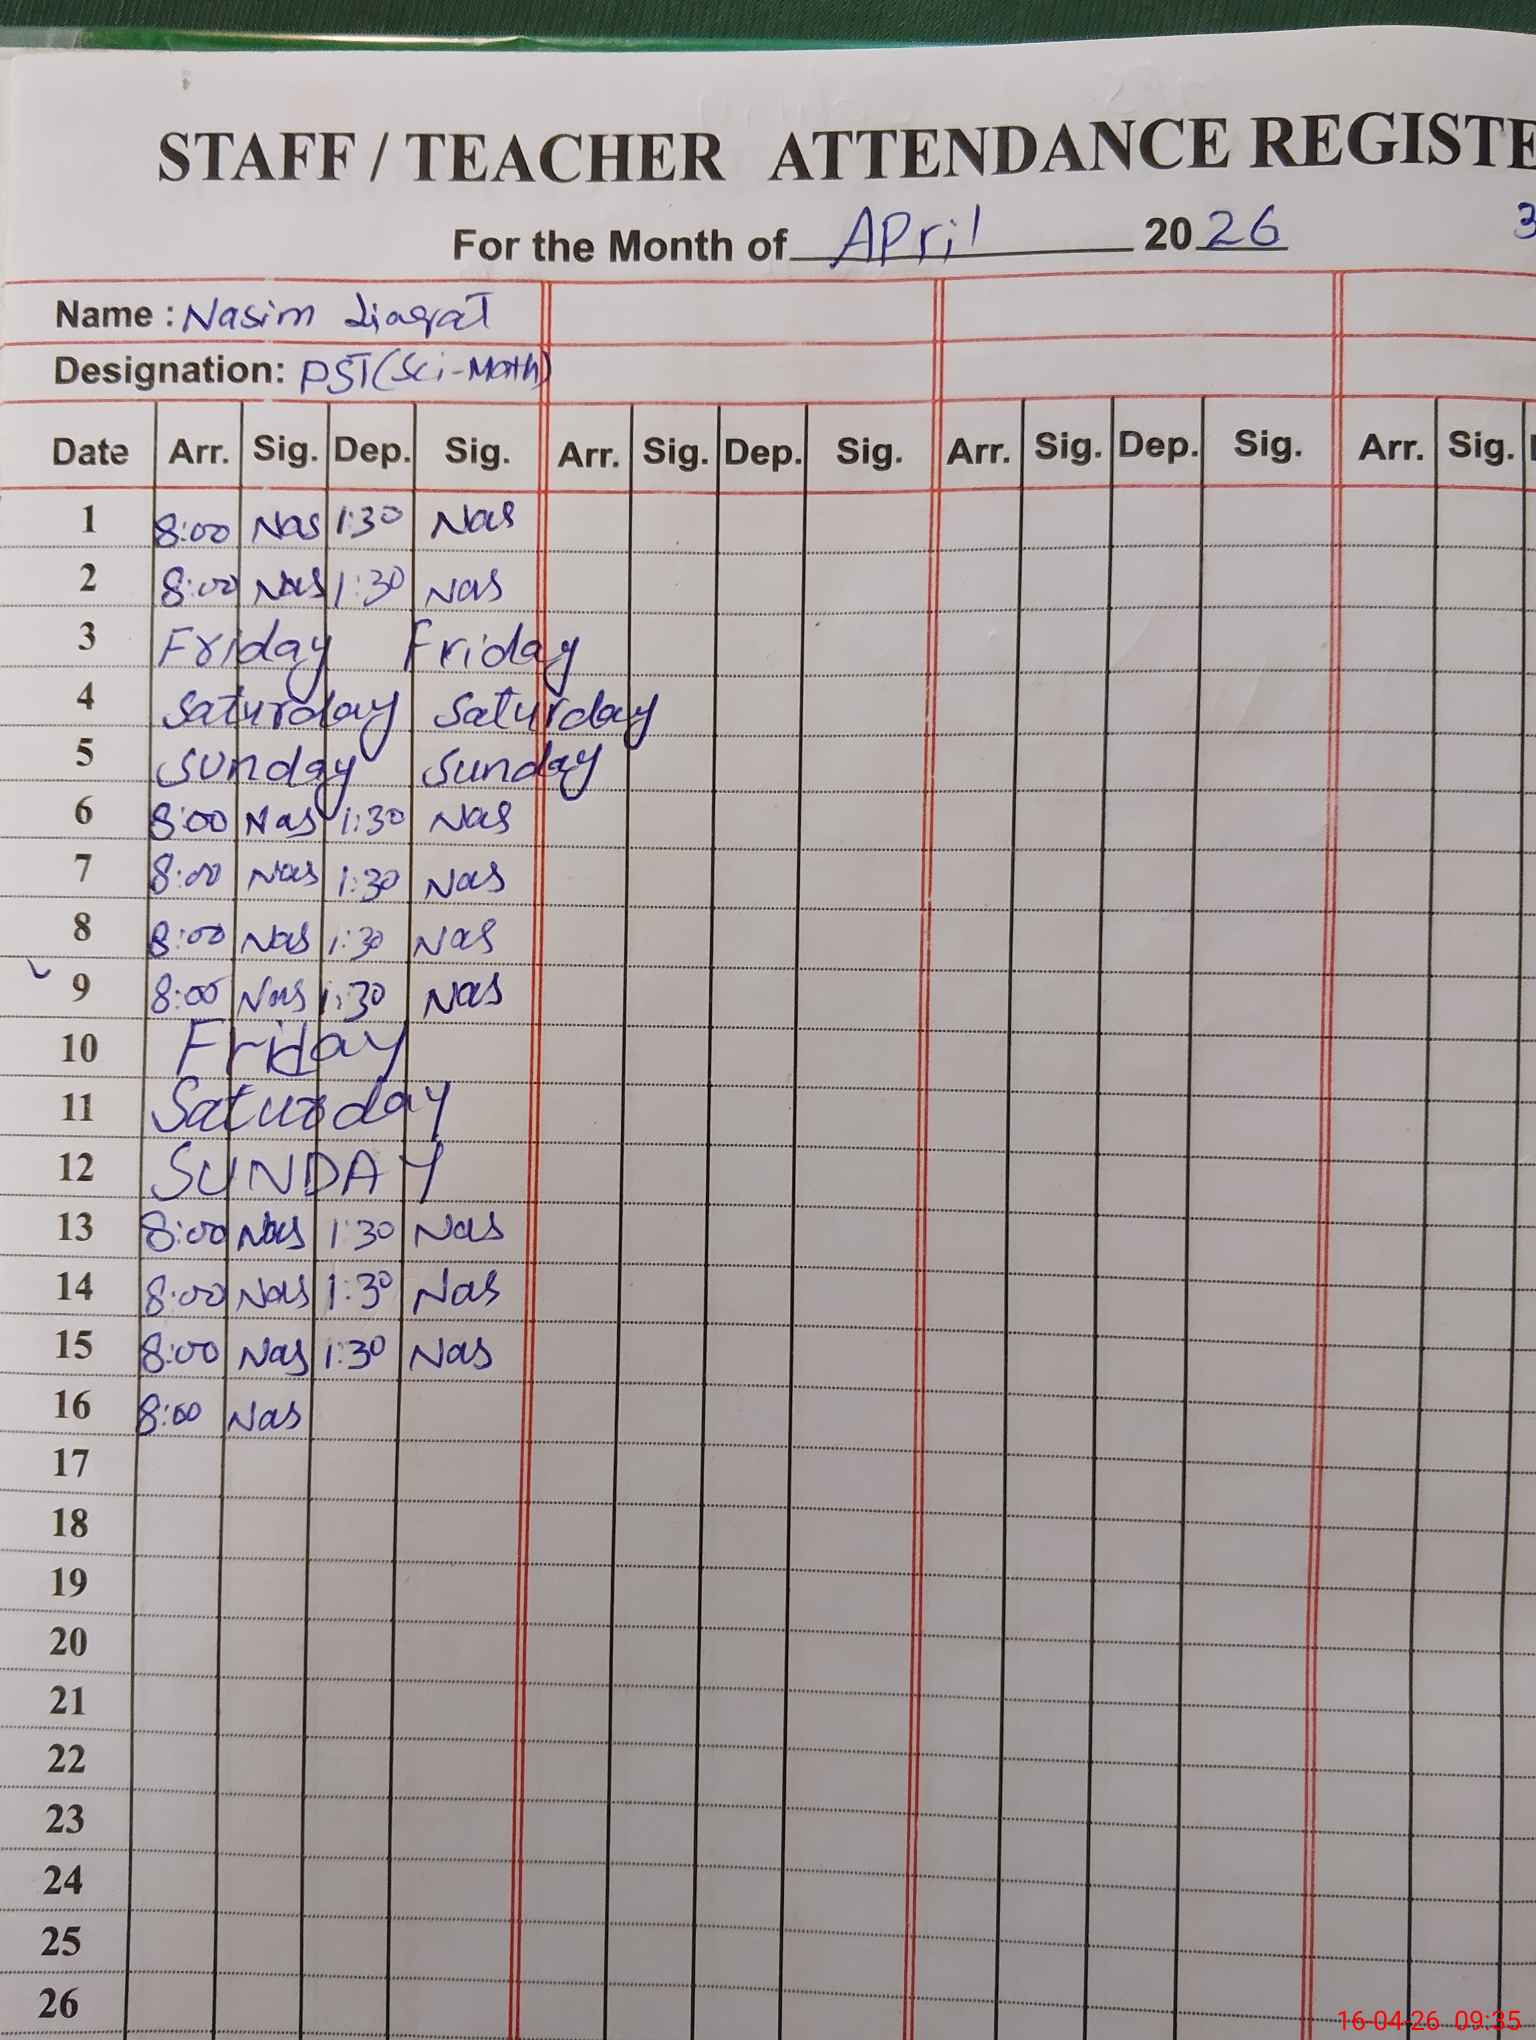 STAFF / TEACHER ATTENDANCE REGISTE
For the Month of April 2026 3
Name : Nasim Liaqat
Designation: PST (Sci-Math)
Date Arr. Sig. Dep. Sig. Arr. Sig. Dep. Sig. Arr. Sig. Dep. Sig. Arr. Sig.
1 8:00 Nas 1:30 Nas
2 8:00 Nas 1:30 Nas
3 Friday Friday
4 Saturday Saturday
5 Sunday Sunday
6 8:00 Nas 1:30 Nas
7 8:00 Nas 1:30 Nas
8 8:00 Nas 1:30 Nas
9 8:00 Nas 1:30 Nas
10 Friday
11 Saturday
12 SUNDAY
13 8:00 Nas 1:30 Nas
14 8:00 Nas 1:30 Nas
15 8:00 Nas 1:30 Nas
16 8:00 Nas
17
18
19
20
21
22
23
24
25
26
16-04-26 09:35